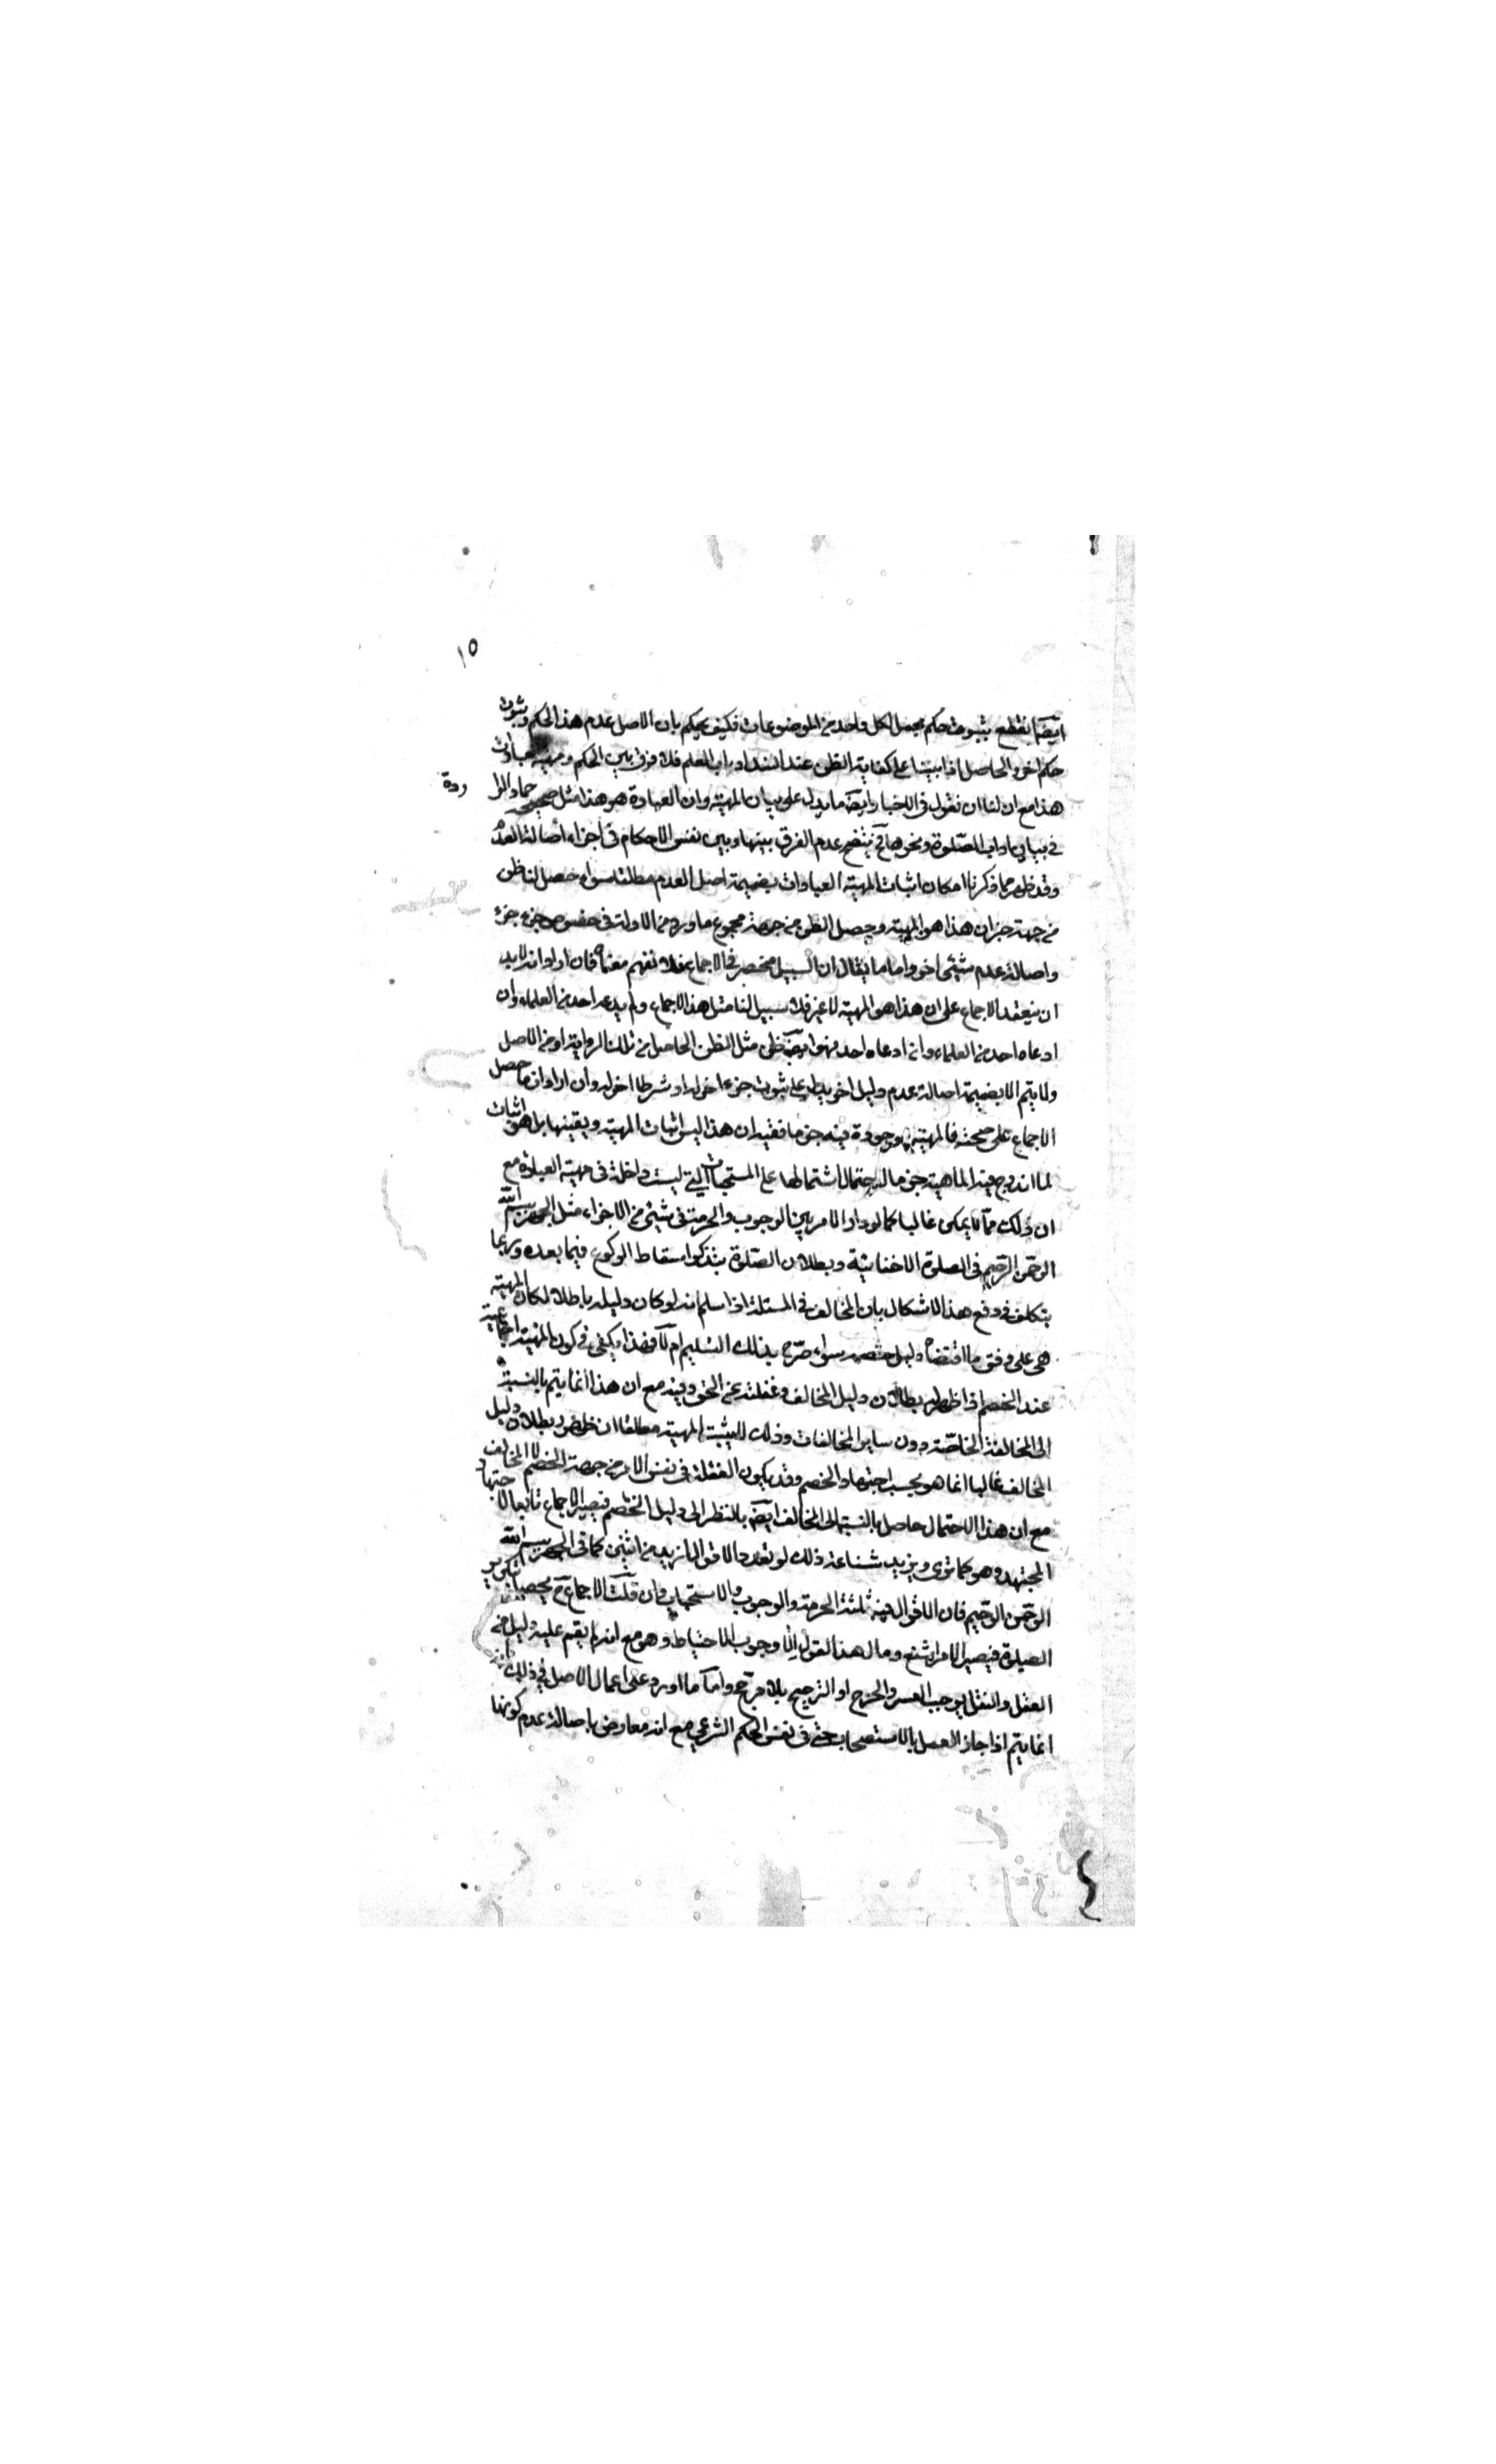 ١٥
ايضا نقطع بثبوت حكم مجمل لكل واحد من الموضوعات فكيف يحكم بان الاصل عدم هذا الحكم وثبوت
حكم اخر والحاصل اذا بنينا على كفاية الظن عند انسداد باب العلم فلا فرق بين الحكم ومهية العبادات
هذا مع ان لنا ان نقول في الاخبار ايضا ما يدل على بيان المهية وان العبادة هو هذا مثل صحيحى حماد الوا
ردة
في بيان اداب الصلوة ونحوها فح يتضح عدم الفرق بينها وبين نفس الاحكام في اجراء اصالة العدم
وقد ظهر مما ذكرنا امكان اثبات المهية العبادات بضميمة اصل العدم مطلقا سواء حصل لنا ظن
من جهة خبر ان هذا هو المهية وحصل الظن من جهة مجموع ما ورد من الادلة في خصوص جزء جزء
واصالة عدم شيئى اخر واما ما يقال ان السبيل منحصر في الاجماع فلا نفهم معناه فان اراد انه لابد
ان ينعقد الاجماع على ان هذا هو المهية لا غير فلا سبيل لنا مثل هذا الاجماع ولم يدعه احد من العلماء وان
ادعاه احد من العلماء وان ادعاه احد فهو ايضا ظنى مثل الظن الحاصل من تلك الرواية او من الاصل
ولا يتم الا بضميمة اصالة عدم دليل اخر يدل على ثبوت جزء اخر له او شرط اخر له وان اراد ان ما حصل
الاجماع على صحته فالمهية موجودة فيه جزما ففيه ان هذا ليس اثبات المهية وتعينها بل هو اثبات
لما اندرج فيه الماهية جزما له احتمال اشتمالها على المستحبات التي ليست داخلة في مهية العبادة مع
ان ذلك مما لا يمكن غالبا كما لو دار الامر بين الوجوب والحرمة في شيئى من الاجزاء مثل الجهر ببسم الله
الرحمن الرحيم في الصلوة الاخفاتية وبطلان الصلوة بتذكر اسقاط الركوع فيما بعده وربما
يتكلف في دفع هذا الاشكال بان المخالف في المسئلة اذا سلم انه لو كان دليله باطلا لكان المهية
هي على وفق ما اقتضاه دليل خصمه سواء صرح بذلك التسليم ام لا فهذا يكفى في كون المهية اجماعية
عند الخصم اذا ظهر له بطلان دليل المخالف وغفلته عن الحق وفيه مع ان هذا انما يتم بالنسبة
الى المخالفة الخاصة دون ساير المخالفات وذلك لا يثبت المهية مطلقا ان ظهور بطلان دليل
المخالف غالبا انما هو بحسب اجتهاد الخصم وقد يكون الغفلة في نفس الامر من جهة الخصم لا المخالف
مع ان هذا الاحتمال حاصل بالنسبة الى المخالف ايضا بالنظر الى دليل الخصم فيصير الاجماع تابعا لاجتهاد
المجتهد وهو كما ترى ويزيد شناعة ذلك لو تعدد الاقوال ازيد من اثنين كما في الجهر ببسم الله
الرحمن الرحيم فان الاقوال فيه ثلثة الحرمة والوجوب والاستحباب فان قلت الاجماع ح يحصل بتكرير
الصلوة فيصير الامر اشنع ومال هذا القول الى وجوب الاحتياط وهو مع انه لم يقم عليه دليل من
العقل والنقل يوجب العسر والحرج او الترجيح بلا مرجح واما ما اورد على اعمال الاصل في ذلك بانه
انما يتم اذا جاز العمل بالاستصحاب حتى في نفس الحكم الشرعي مع انه معارض باصالة عدم كونها